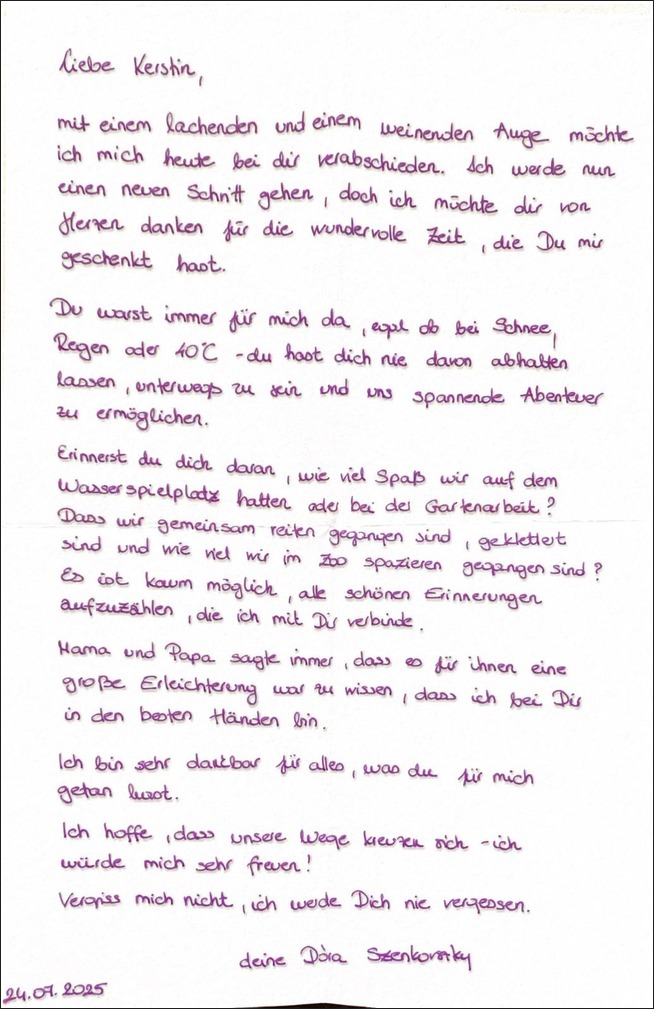 Liebe Kerstin,
mit einem lachenden und einem weinenden Auge möchte
ich mich heute bei dir verabschieden. Ich werde nun
einen neuen Schritt gehen, doch ich möchte dir von
Herzen danken für die wundervolle Zeit, die Du mir
geschenkt hast.
Du warst immer für mich da, egal ob bei Schnee,
Regen oder 40°C - du hast dich nie davon abhalten
lassen, unterwegs zu sein und uns spannende Abenteuer
zu ermöglichen.
Erinnerst du dich daran, wie viel Spaß wir auf dem
Wasserspielplatz hatten oder bei der Gartenarbeit?
Dass wir gemeinsam reiten gegangen sind, geklettert
sind und wie viel wir im Zoo spazieren gegangen sind?
Es ist kaum möglich, alle schönen Erinnerungen
aufzuzählen, die ich mit Dir verbinde.
Mama und Papa sagte immer, dass es für ihnen eine
große Erleichterung war zu wissen, dass ich bei Dir
in den besten Händen bin.
Ich bin sehr dankbar für alles, was du für mich
getan hast.
Ich hoffe, dass unsere Wege kreuzen sich - ich
würde mich sehr freuen!
Vergiss mich nicht, ich werde Dich nie vergessen.
deine Dóra
24.07.2025